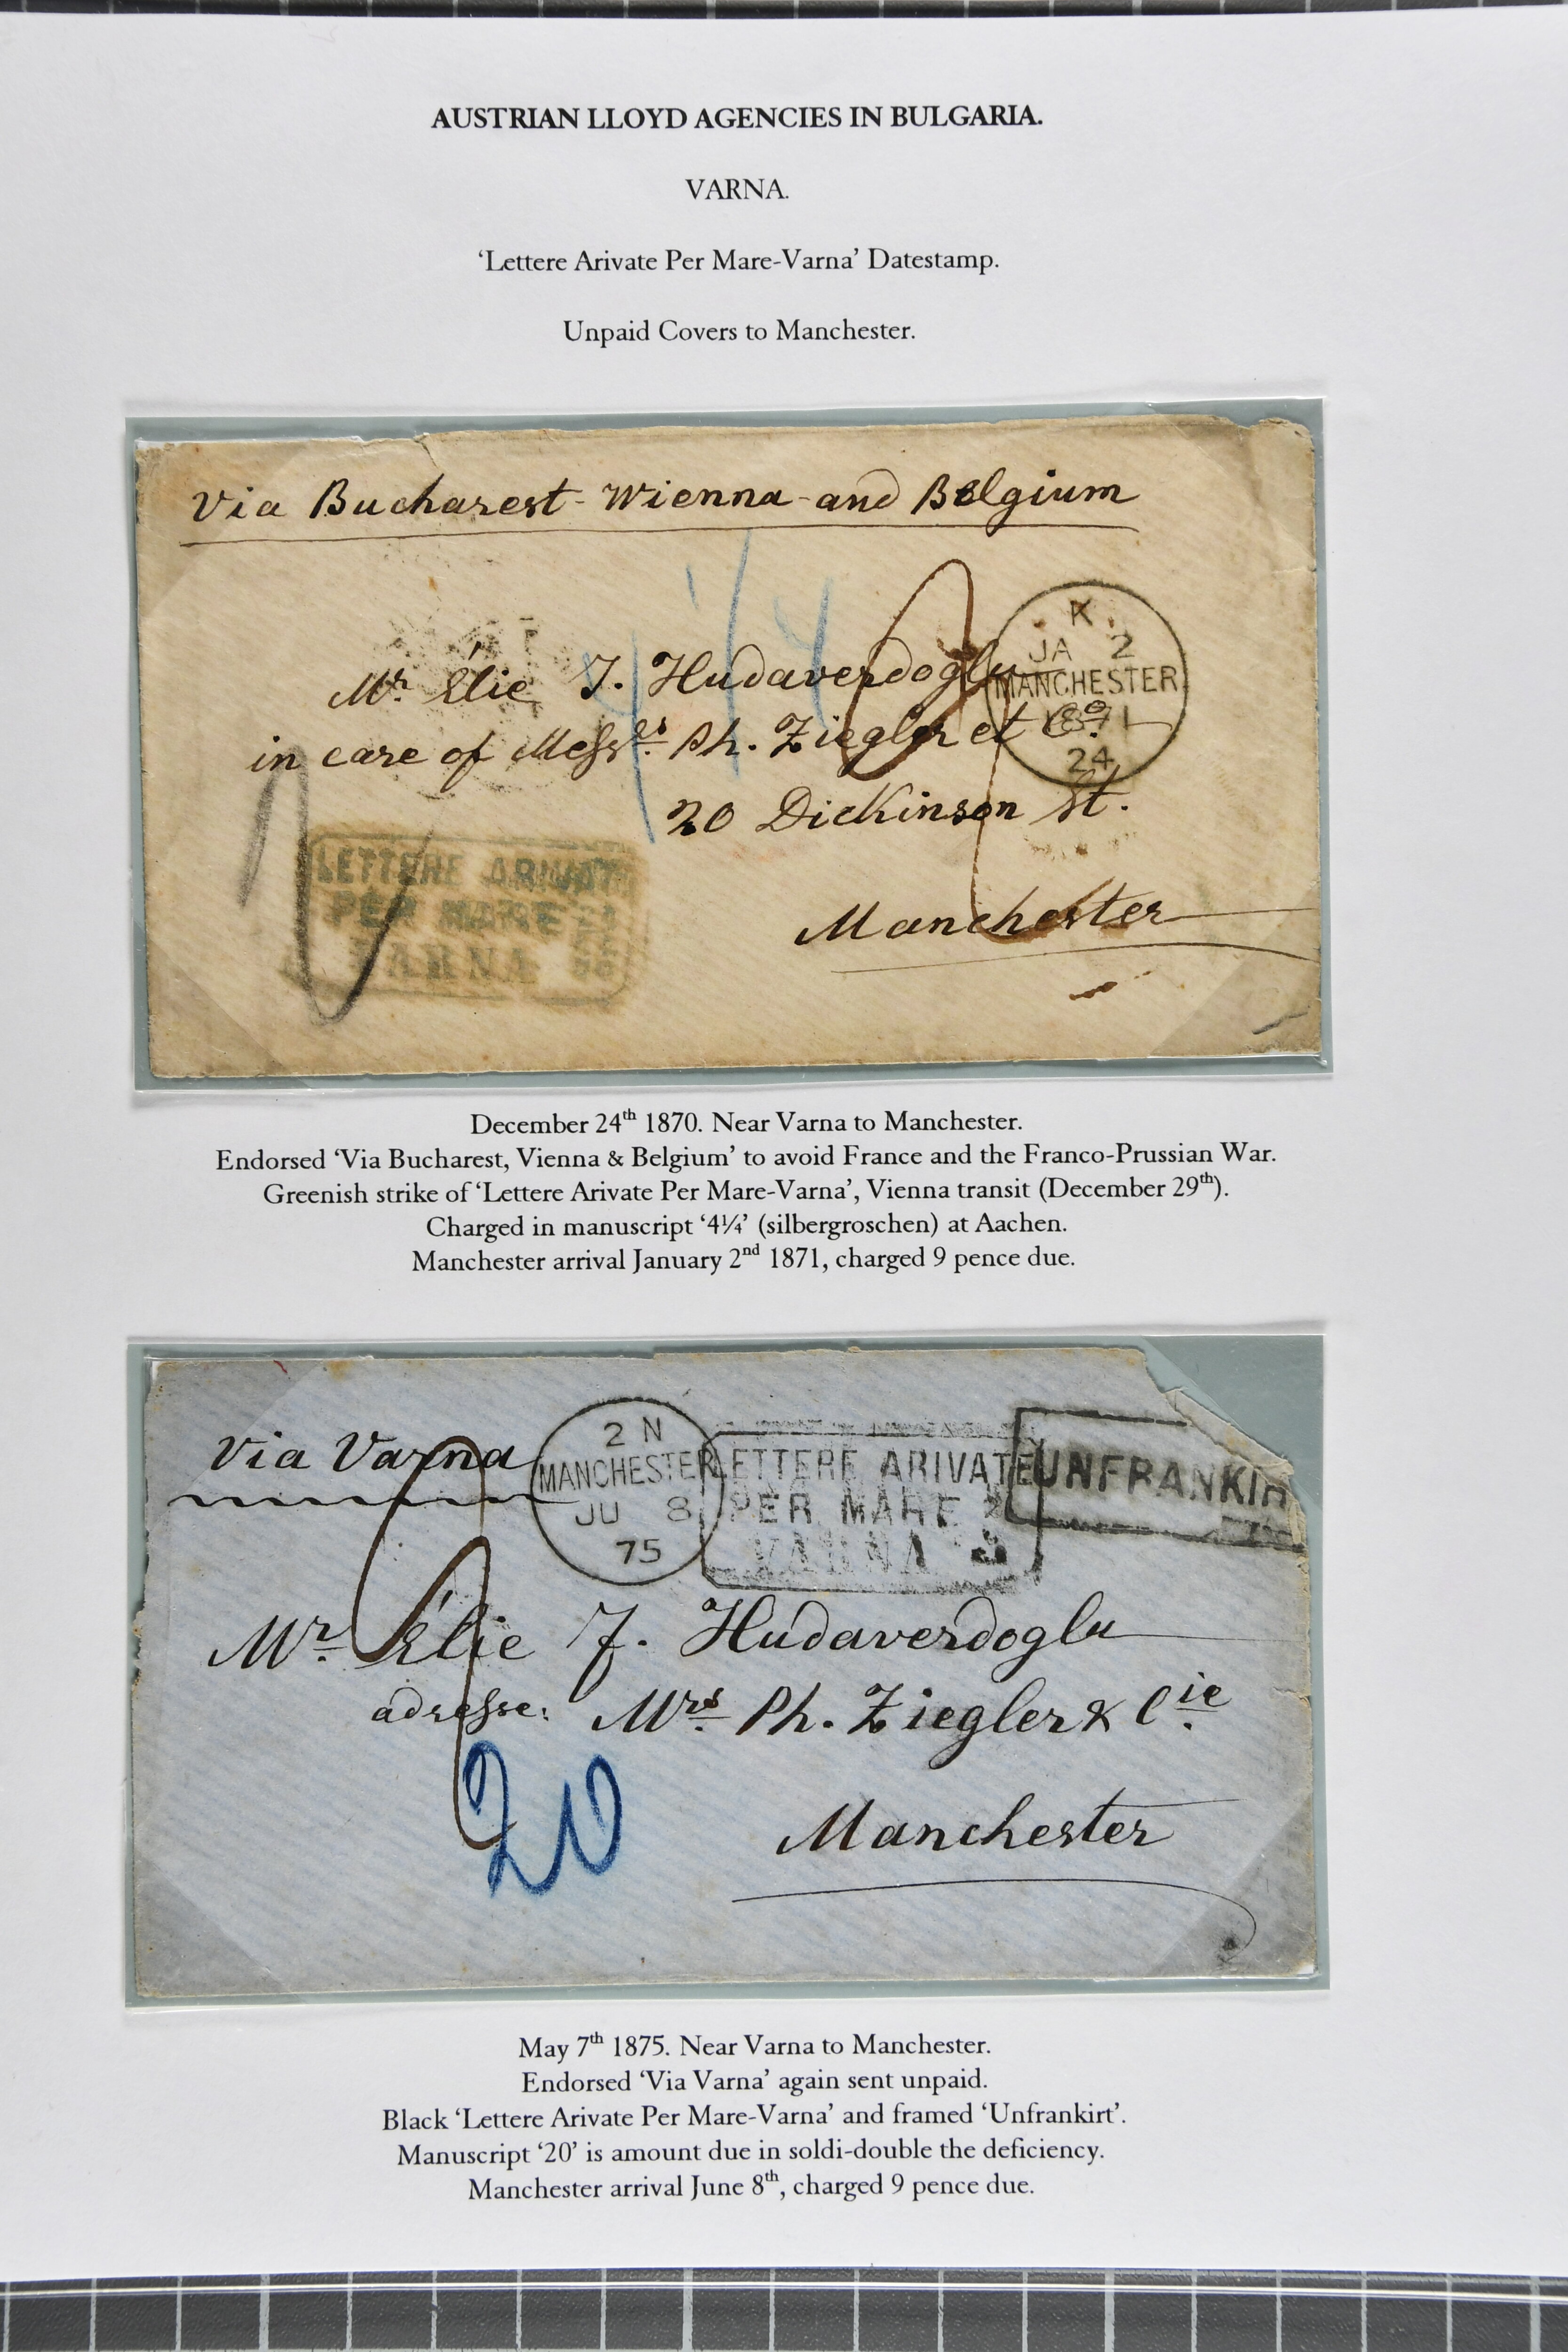 AUSTRIAN LLOYD AGENCIES IN BULGARIA.
VARNA.
‘Lettere Arivate Per Mare-Varna’ Datestamp.
Unpaid Covers to Manchester.
Via Bucharest - Wienna - and Belgium
K
JA 2
MANCHESTER
1871
24
Mr. Élie J. Hudaverdoglu
in care of Messrs. Ph. Ziegler et Co.
20 Dickinson St.
Manchester
LETTERE ARIVATE
PER MARE
VARNA
December 24th 1870. Near Varna to Manchester.
Endorsed ‘Via Bucharest, Vienna & Belgium’ to avoid France and the Franco-Prussian War.
Greenish strike of ‘Lettere Arivate Per Mare-Varna’, Vienna transit (December 29th).
Charged in manuscript ‘4¼’ (silbergroschen) at Aachen.
Manchester arrival January 2nd 1871, charged 9 pence due.
Via Varna
2 N
MANCHESTER
JU 8
75
LETTERE ARIVATE
PER MARE
VARNA
UNFRANKIR
Mr. Élie J. Hudaverdoglu
adresse: Mrs. Ph. Ziegler & Cie.
20
Manchester
May 7th 1875. Near Varna to Manchester.
Endorsed ‘Via Varna’ again sent unpaid.
Black ‘Lettere Arivate Per Mare-Varna’ and framed ‘Unfrankirt’.
Manuscript ‘20’ is amount due in soldi-double the deficiency.
Manchester arrival June 8th, charged 9 pence due.